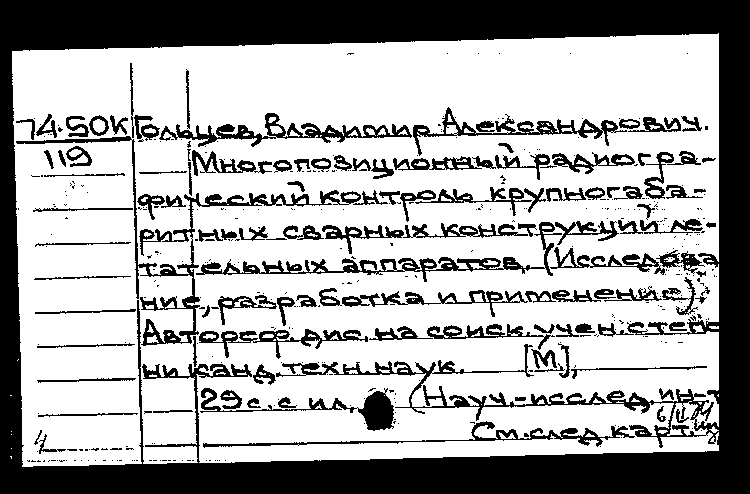 74-50К Гольцев, Владимир Александрович.
119 Многопозиционный радиогра-
фический контроль крупногаба-
ритных сварных конструкций ле-
тательных аппаратов. (Исследова
ние, разработка и применение).
Автореф. дис. на соиск. учен. степе
ни канд. техн. наук. [М.],
29 с. с ил. (Науч.-исслед. ин-т
См. след. карт.
4